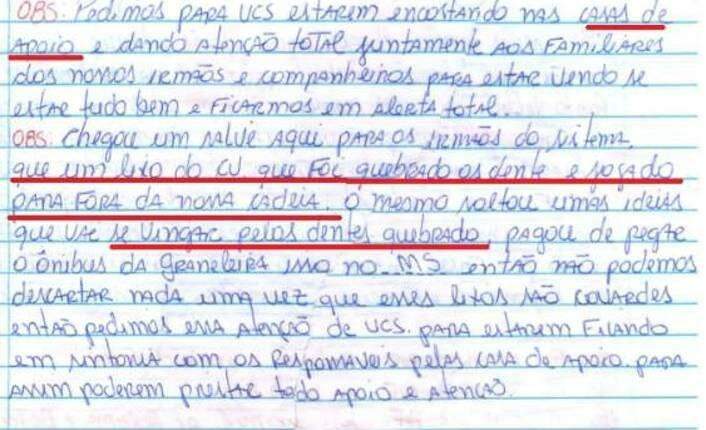 OBS: Pedimos PARA UCS ESTAREM ENCOSTANDO NAS CASAS DE
APOIO E DANDO ATENÇÃO TOTAL JUNTAMENTE AOS FAMILIARES
DOS NOSSOS IRMÃOS E COMPANHEIROS PARA ESTAR VENDO SE
ESTAR TUDO BEM E FICARMOS EM ALERTA TOTAL.
OBS: Chegou um SALVE AQUI PARA OS IRMÃOS DO SISTEMA,
QUE UM LIXO DO CV QUE FOI QUEBRADO OS DENTE E JOGADO
PARA FORA DA NOSSA CADEIA. O MESMO SOLTOU UMAS IDEIAS
QUE VAI SE VINGAR PELOS DENTES QUEBRADO, PAGOU DE
O ÔNIBUS DA GRANELEIRA ISSO NO MS ENTÃO NÃO PODEMOS
DESCARTAR NADA UMA VEZ QUE ESSES LIXOS SÃO COVARDES
ENTÃO PEDIMOS ESSA ATENÇÃO DE UCS. PARA ESTAREM FICANDO
EM SINTONIA COM OS RESPONSAVEIS PELAS CASA DE APOIO. PARA
ASSIM PODEREM PRESTAR TODO APOIO E ATENÇÃO.